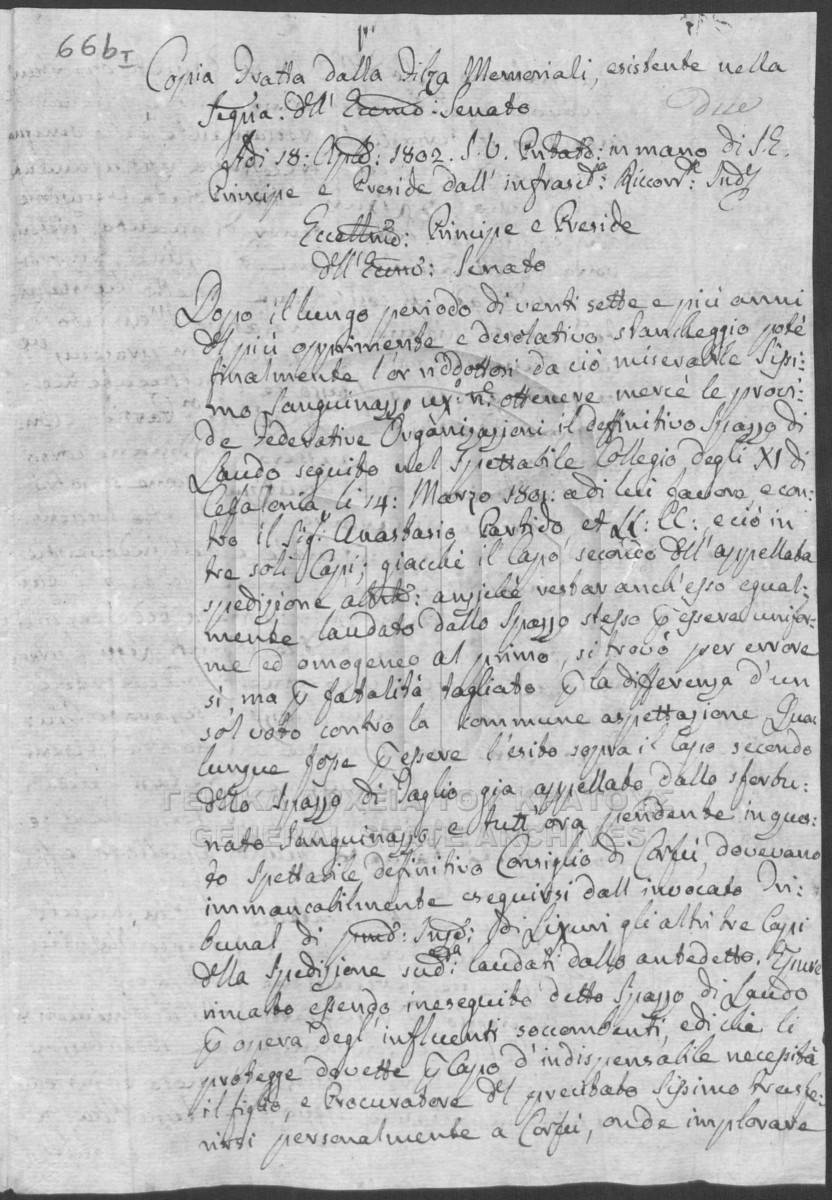 66b I
Copia tratta dalla Filza Memoriali, esistente nella
Segria: dell' Eccmo: Senato
due
Adi 18: Aple: 1802. S. V. Pntato: in mano di S. E.
Principe e Preside dall' infrascto: Riccorr:
Eccellmo: Principe e Preside
dell' Eccmo: Senato
Dopo il lungo periodo di venti sette e più anni
del più opprimente e desolativo stancheggio potè
finalmente l'or da ciò miserabile Sipsi:
mo Sanguinazzo ottenere mercè le provi:
de Federative Organizazioni il deffinitivo Spazzo di
Laudo seguito nel Spettabile Collegio degli XI di
Cefalonia li 14: Marzo 1801: a di lui favore, e con:
tro il Sigr: Anastasio Partido et LL: CC:, e ciò in
tre soli Capi; giacchè il Capo secondo dell' appellata
spedizione anzichè restar anch' esso egual:
mente laudato dallo Spazzo stesso p essere unifor:
me ed omogeneo al primo, si trovò per errore
sì, ma p fatalità tagliato p la differenza d'un
sol voto contro la commune aspettazione. Qua:
lunque fosse p essere l'esito sopra il Capo secondo
dello Spazzo di Taglio già appellato dallo sfortu:
nato Sanguinazzo e tutt' ora pendente in quo:
to Spettabile definitivo Consiglio di Corfù, dovevano
immancabilmente eseguirsi dall' invocato Tri:
bunal di di Lixuri gli altri tre Capi
della Spedizione laudati dallo antedetto.
rimasto essendo ineseguito detto Spazzo di Laudo
p opera degl' influenti soccombenti, e di chi li
protegge dovette p Capo d'indispensabile necessità
il figlio, e Procuratore del precitato Sipsimo trasfe:
rirsi personalmente a Corfù, onde implorare
ΓΕΝΙΚΑ ΑΡΧΕΙΑ ΤΟΥ ΚΡΑΤΟΥΣ
GENERAL STATE ARCHIVES